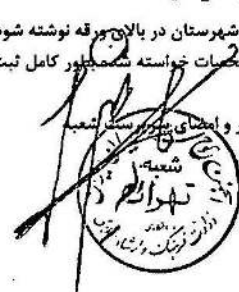 شهرستان در بالای ورقه نوشته شود
خصات خواسته شده بطور کامل ثبت
و امضای سرپرست شعبه
شعبه
تهران
وزارت فرهنگ و ارشاد